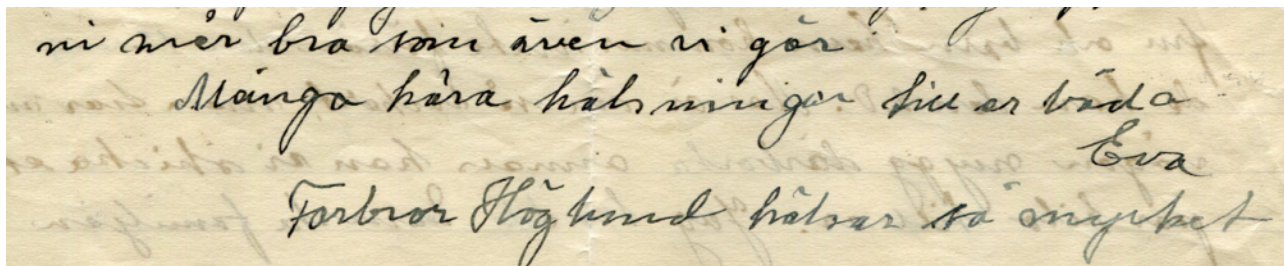 ni mår bra som även vi gör.
Många kära hälsningar till er båda
Eva
Farbror Höglund hälsar så mycket